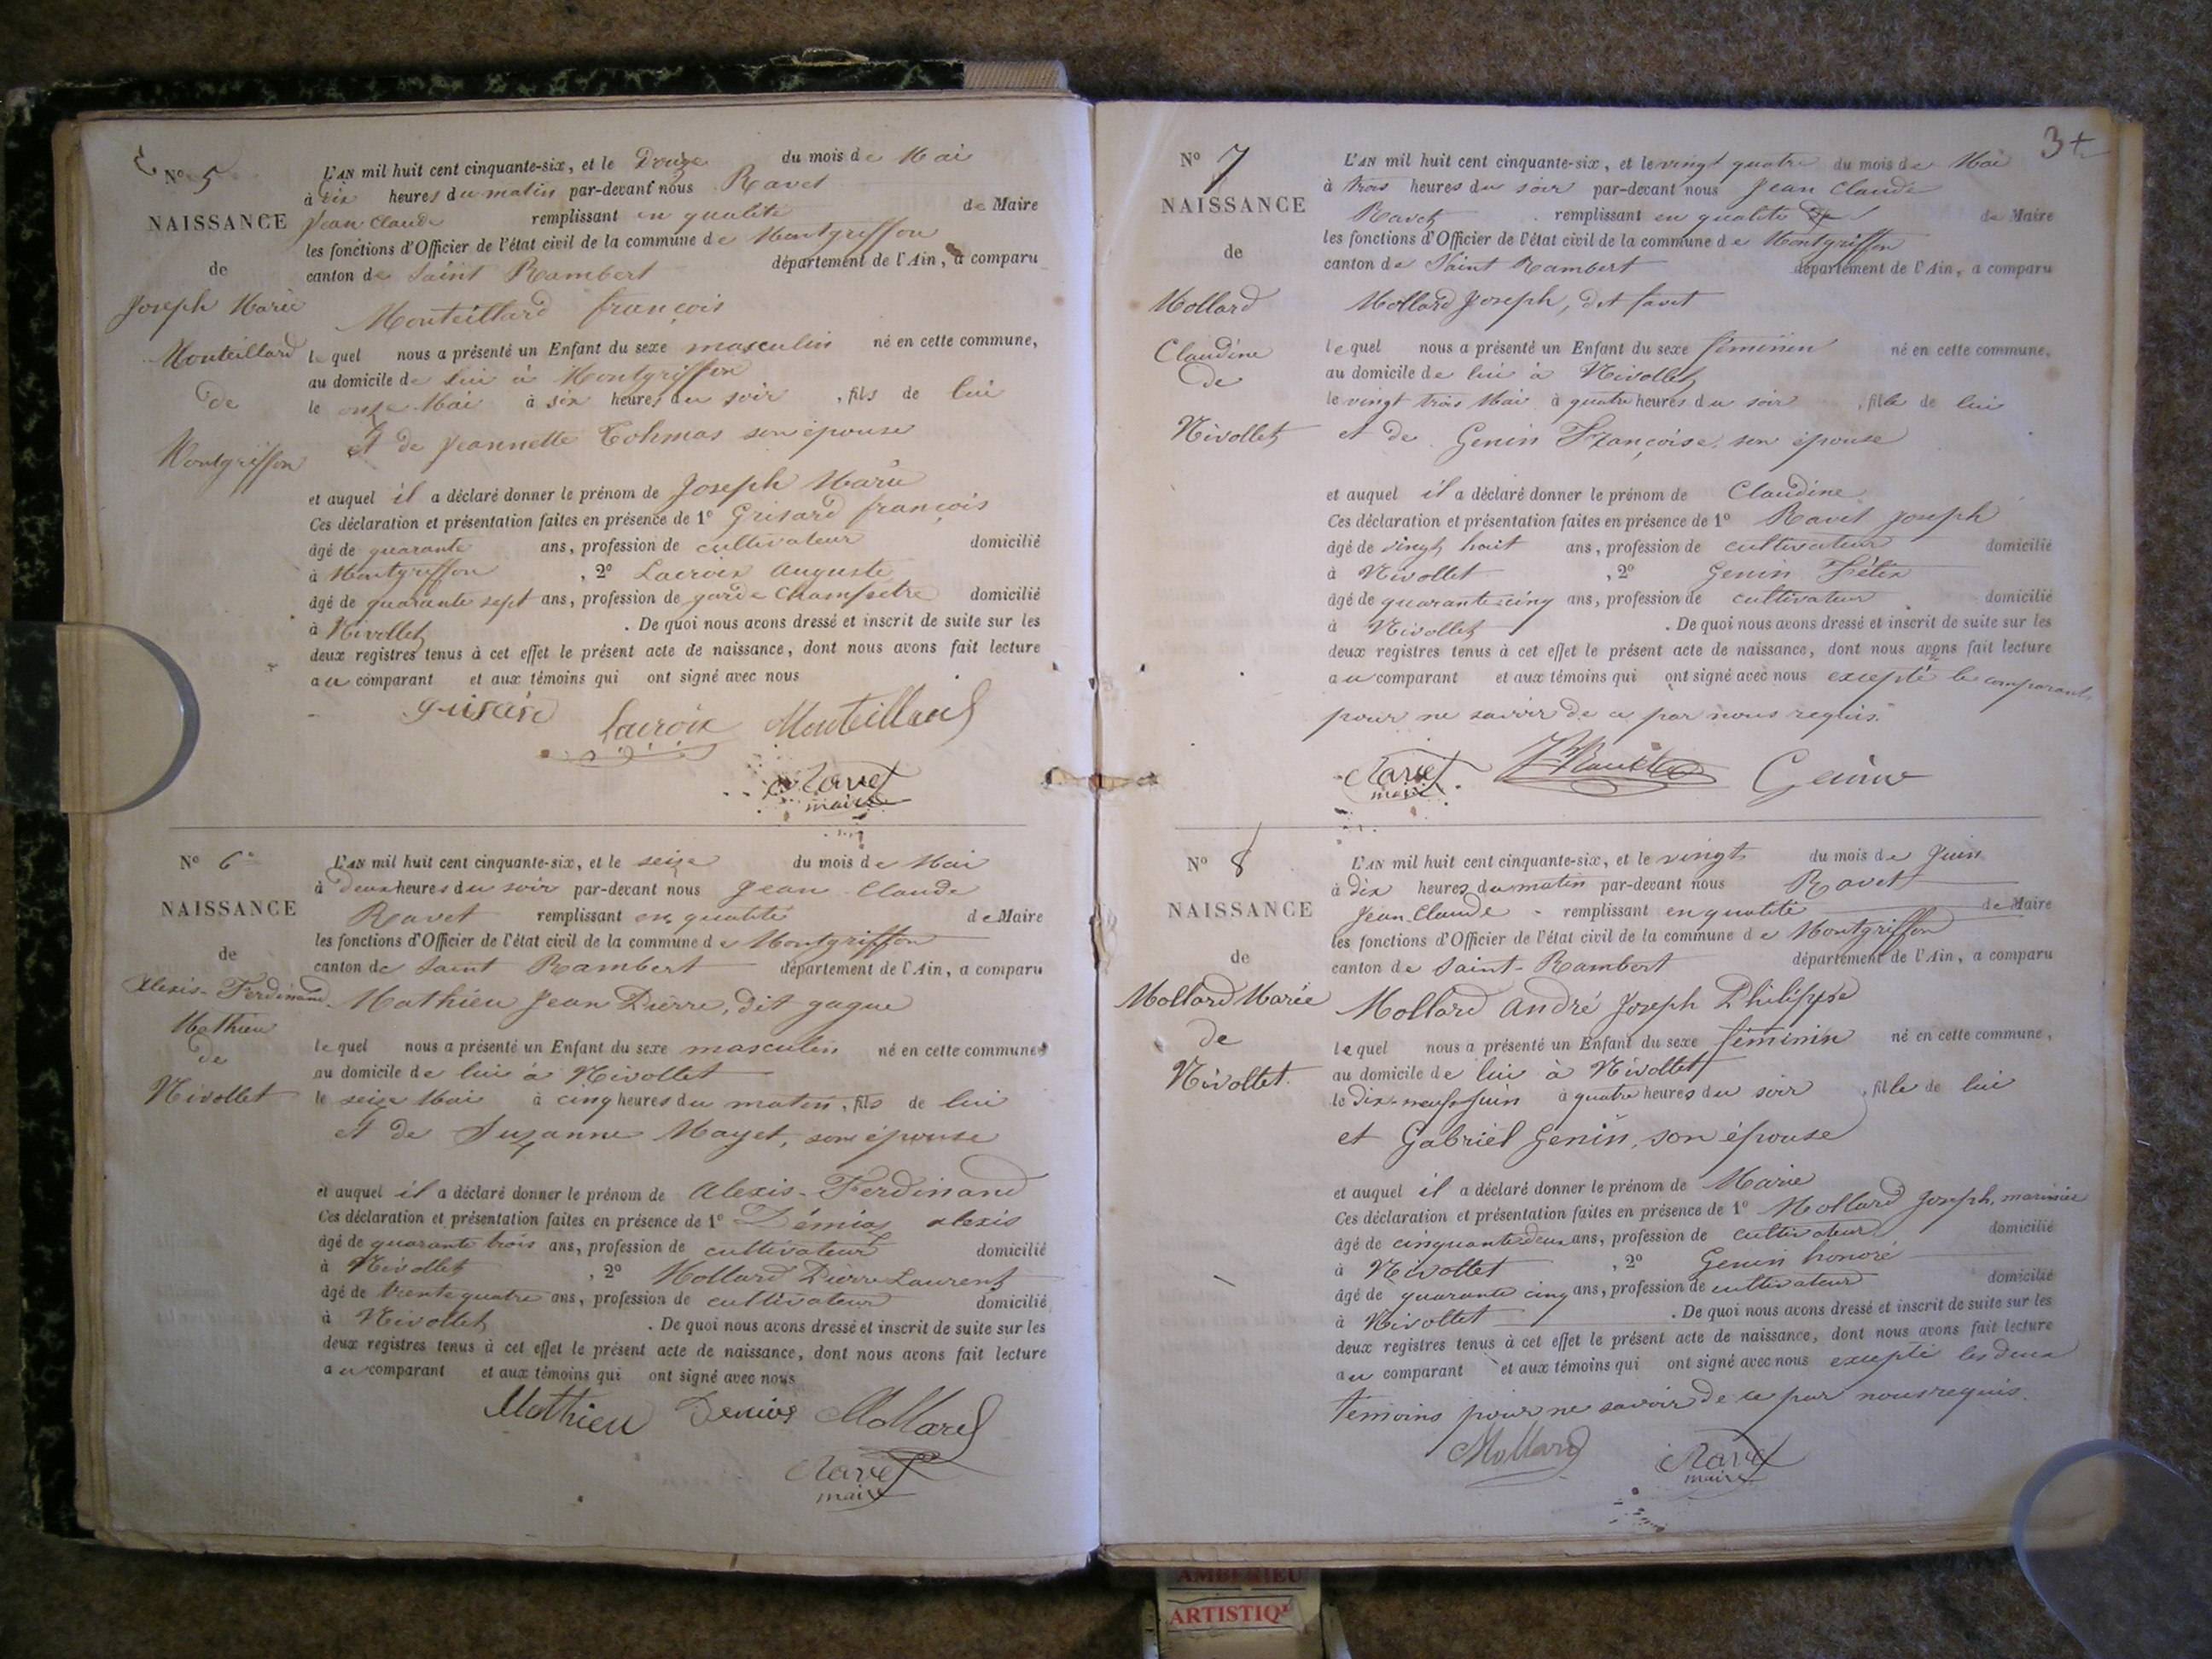 N° 5
NAISSANCE
de
Joseph Marie
Monteillard
de
Montgriffon
L'AN mil huit cent cinquante-six, et le Douze du mois de Mai
à dix heures du matin par-devant nous Ravet
Jean Claude remplissant en qualité de Maire
les fonctions d'Officier de l'état civil de la commune de Montgriffon
canton de Saint Rambert département de l'Ain, a comparu
Monteillard françois
lequel nous a présenté un Enfant du sexe masculin né en cette commune,
au domicile de lui à Montgriffon
le onze Mai à six heures du soir, fils de lui
et de Jeannette Tohmas son épouse
et auquel il a déclaré donner le prénom de Joseph Marie
Ces déclaration et présentation faites en présence de 1° Grisard françois
âgé de quarante ans, profession de cultivateur domicilié
à Montgriffon, 2° Lacroix Auguste
âgé de quarante sept ans, profession de garde Champêtre domicilié
à Nivollet. De quoi nous avons dressé et inscrit de suite sur les
deux registres tenus à cet effet le présent acte de naissance, dont nous avons fait lecture
au comparant et aux témoins qui ont signé avec nous
Lacroix Monteillard
Ravet
maire
N° 6
NAISSANCE
de
Alexis-Ferdinand
Mathieu
de
Nivollet
L'AN mil huit cent cinquante-six, et le seize du mois de Mai
à deux heures du soir par-devant nous Jean Claude
Ravet remplissant en qualité de Maire
les fonctions d'Officier de l'état civil de la commune de Montgriffon
canton de Saint Rambert département de l'Ain, a comparu
Mathieu Jean Pierre, dit gague
lequel nous a présenté un Enfant du sexe masculin né en cette commune
au domicile de lui à Nivollet
le seize Mai à cinq heures du matin, fils de lui
et de Suzanne Mayet, son épouse
et auquel il a déclaré donner le prénom de Alexis-Ferdinand
Ces déclaration et présentation faites en présence de 1° Démias alexis
âgé de quarante trois ans, profession de cultivateur domicilié
à Nivollet, 2° Mollard Pierre Laurent
âgé de trente quatre ans, profession de cultivateur domicilié
à Nivollet. De quoi nous avons dressé et inscrit de suite sur les
deux registres tenus à cet effet le présent acte de naissance, dont nous avons fait lecture
au comparant et aux témoins qui ont signé avec nous
Mathieu Demias Mollard
Ravet
maire
N° 7
NAISSANCE
de
Mollard
Claudine
de
Nivollet
L'AN mil huit cent cinquante-six, et le vingt quatre du mois de Mai
à trois heures du soir par-devant nous Jean Claude
Ravet remplissant en qualité de Maire
les fonctions d'Officier de l'état civil de la commune de Montgriffon
canton de Saint Rambert département de l'Ain, a comparu
Mollard Joseph, dit favet
lequel nous a présenté un Enfant du sexe féminin né en cette commune,
au domicile de lui à Nivollet
le vingt trois Mai à quatre heures du soir, fille de lui
et de Genin Françoise, son épouse
et auquel il a déclaré donner le prénom de Claudine
Ces déclaration et présentation faites en présence de 1° Ravet Joseph
âgé de vingt huit ans, profession de cultivateur domicilié
à Nivollet, 2° Genin Félix
âgé de quarante cinq ans, profession de cultivateur domicilié
à Nivollet. De quoi nous avons dressé et inscrit de suite sur les
deux registres tenus à cet effet le présent acte de naissance, dont nous avons fait lecture
au comparant et aux témoins qui ont signé avec nous excepté le comparant
pour ne savoir de ce par nous requis.
Ravet Genin
maire
N° 8
NAISSANCE
de
Mollard Marie
de
Nivollet.
L'AN mil huit cent cinquante-six, et le vingt du mois de Juin
à dix heures du matin par-devant nous Ravet
Jean-Claude remplissant en qualité de Maire
les fonctions d'Officier de l'état civil de la commune de Montgriffon
canton de Saint-Rambert département de l'Ain, a comparu
Mollard André Joseph Philippe
lequel nous a présenté un Enfant du sexe féminin né en cette commune,
au domicile de lui à Nivollet
le dix-neuf Juin à quatre heures du soir, fille de lui
et Gabriel Genin, son épouse
et auquel il a déclaré donner le prénom de Marie
Ces déclaration et présentation faites en présence de 1° Mollard Joseph, marinier
âgé de cinquante deux ans, profession de cultivateur domicilié
à Nivollet, 2° Genin honoré
âgé de quarante cinq ans, profession de cultivateur domicilié
à Nivollet. De quoi nous avons dressé et inscrit de suite sur les
deux registres tenus à cet effet le présent acte de naissance, dont nous avons fait lecture
au comparant et aux témoins qui ont signé avec nous excepté les deux
témoins pour ne savoir de ce par nous requis.
Mollard Ravet
maire
AMBERIEU
ARTISTIQ